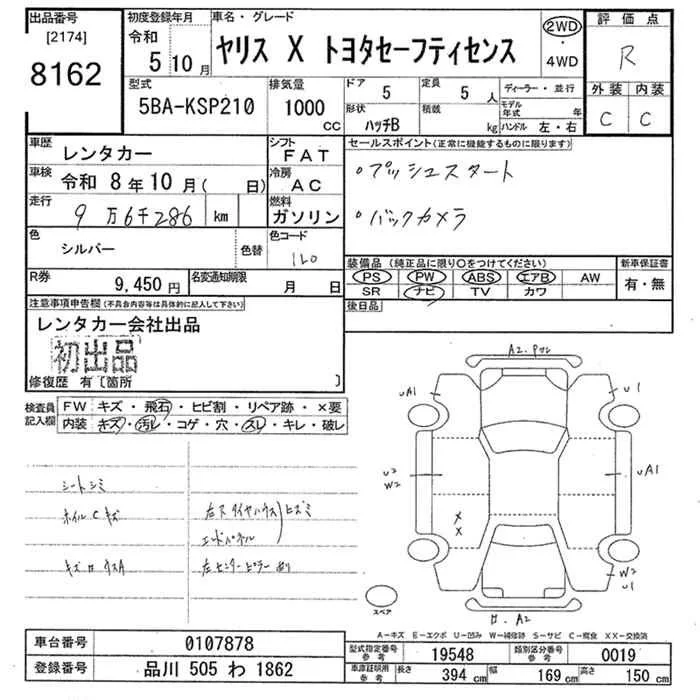 出品番号 初度登録年月 車名・グレード 評価点
[2174] 令和 2WD
8162 5 10月 ヤリス X トヨタセーフティセンス ・ R
4WD
型式 排気量 ドア 定員 ディーラー・並行 外装 内装
5BA-KSP210 1000 CC 5 5人 モデル年式 年 C C
形状 積載
ハッチB kg ハンドル 左・右
車歴 レンタカー シフト FAT セールスポイント(正常に機能するものに限ります)
車検 令和 8年10月( 日) 冷房 AC ・プッシュスタート
走行 9万6千286 km 燃料 ガソリン ・バックカメラ
色 シルバー 色替 色コード 1L0
装備品(純正品に限り○をつけてください) 新車保証書
PS PW ABS エアB AW 有・無
SR ナビ TV カワ
R券 9,450円 名変通知期限 月 日
後日品
注意事項申告欄(不具合内容等は具体的に記入して下さい)
レンタカー会社出品
初出品
修復歴 有〔箇所 〕
検査員記入欄 FW キズ・飛石・ヒビ割・リペア跡・×要
内装 キズ・汚レ・コゲ・穴・スレ・キレ・破レ
シートシミ
ホイルCキズ
右スタイヤハウス ヒズミ
エンドパネル
A2.
uA1
u1
u2
W2
uA1
×
×
W2
u
A2
スペア
A-キズ E-エクボ U-凹み W-補修跡 S-サビ C-腐食 XX-交換済
車台番号 0107878
登録番号 品川 505 わ 1862
型式指定番号 参考 19548 類別区分番号 参考 0019
車庫証明用 参考 長さ 394 cm 幅 169 cm 高さ 150 cm